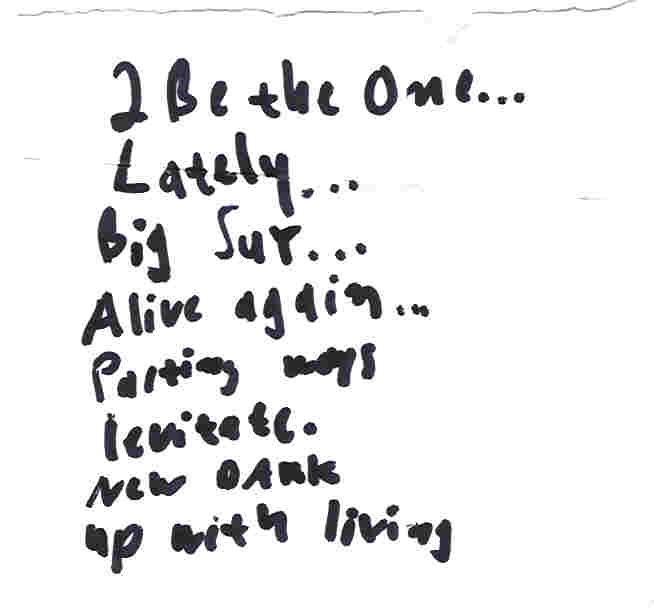 2 Be the One...
Lately...
Big Sur...
Alive again...
Parting ways
levitate.
New DARK
up with living